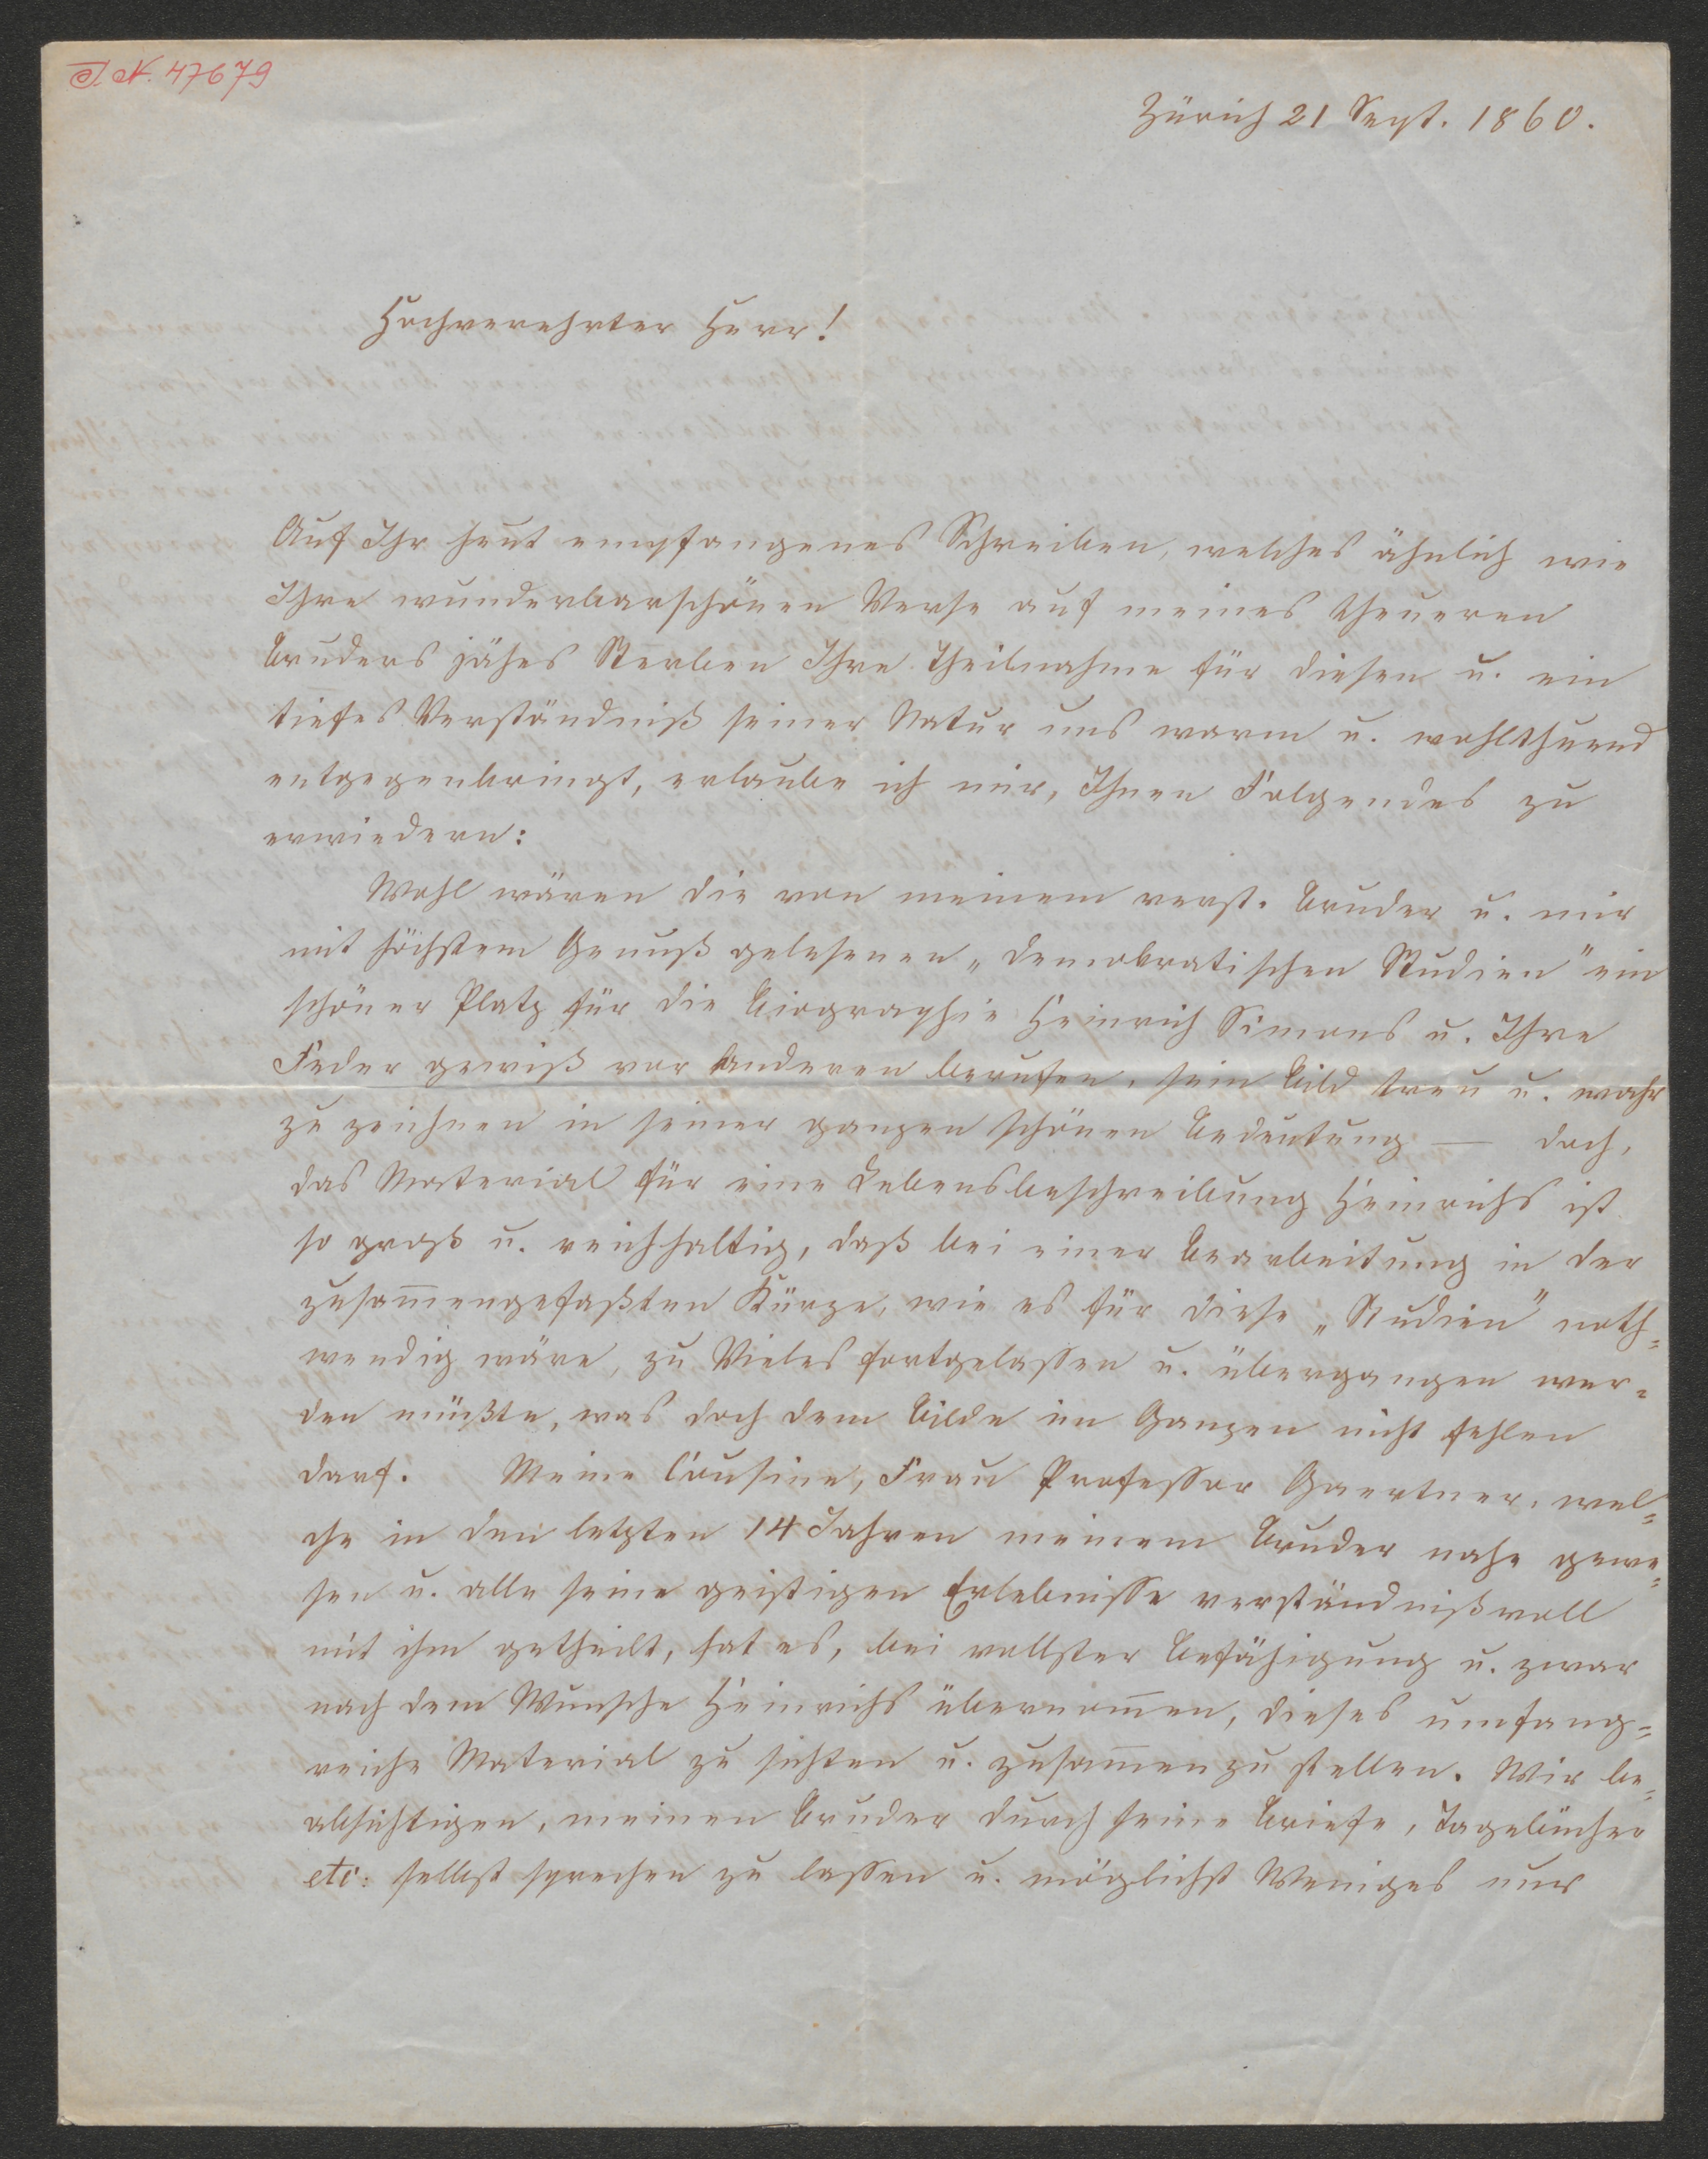 I. N. 47679
Zürich 21 Sept. 1860.
Hochverehrter Herr!
Auf Ihr heut empfangenes Schreiben, welches ähnlich wie
Ihre wunderbarschönen Verse auf meines theueren
Bruders jähes Sterben Ihre Theilnahme für diesen u. ein
tiefes Verständniß seiner Natur uns warm u. wohlthuend
entgegenbringt, erlaube ich mir, Ihnen Folgendes zu
erwiedern:
Wohl wären die von meinem verst. Bruder u. mir
mit höchstem Genuß gelesenen „demokratischen Studien" ein
schöner Platz für die Biographie Heinrich Simons u. Ihre
Feder gewiß vor Anderen berufen, sein Bild treu u. wahr
zu zeichnen in seiner ganzen schönen Bedeutung — doch,
das Material für eine Lebensbeschreibung Heinrichs ist
so groß u. reichhaltig, daß bei einer Bearbeitung in der
zusam̅engefaßten Kürze, wie es für diese „Studien" noth=
wendig wäre, zu Vieles fortgelassen u. übergangen wer=
den müßte, was doch dem Bilde im Ganzen nicht fehlen
darf. Meine Cousine, Frau Professor Gaertner, wel=
che in den letzten 14 Jahren meinem Bruder nahe gewe=
sen u. alle seine geistigen Erlebnisse verständnißvoll
mit ihm getheilt, hat es, bei vollster Befähigung u. zwar
nach dem Wunsche Heinrichs übernom̅en, dieses umfang=
reiche Material zu sichten u. zusam̅enzustellen. Wir be=
absichtigen, meinen Bruder durch seine Briefe, Tagebücher
etc: selbst sprechen zu lassen u. möglichst Weniges nur